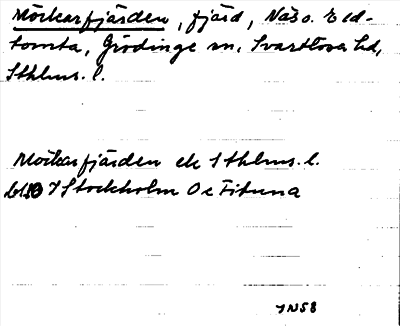 Mörkarfjärden, fjärd, Näs o. Eld-
tomta, Grödinge sn, Svartlösa hd,
Sthlms. l.
Mörkarfjärden ek Sthlms. l.
bl. 10 7 Stockholm O o Fituna
JN58